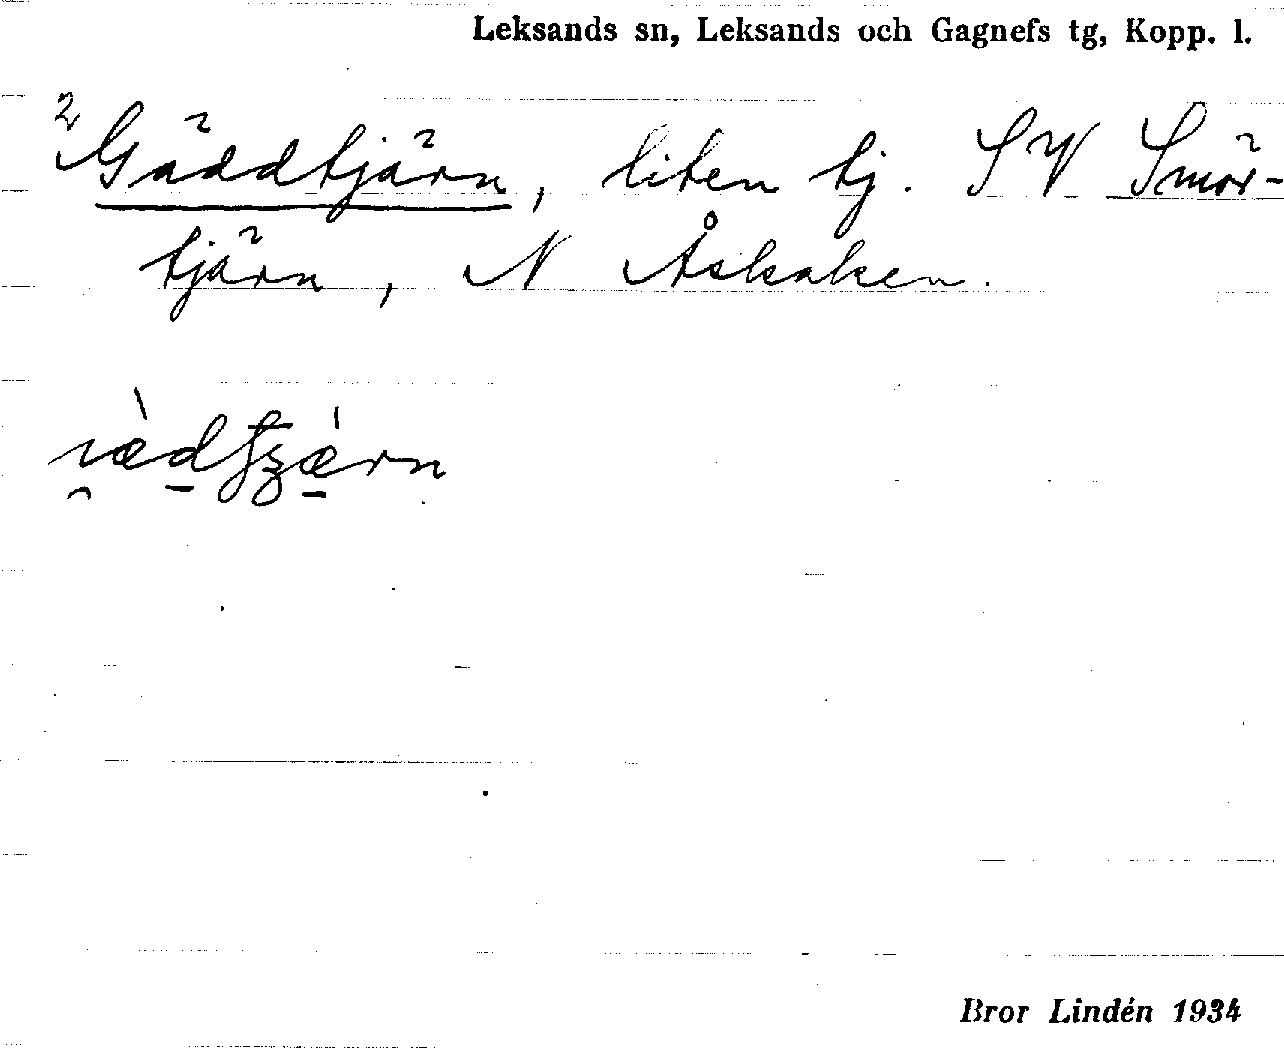 Leksands sn, Leksands och Gagnefs tg, Kopp. l.
2 Gäddtjärn, liten tj. SV Smör-
tjärn, N Åskaken.
Bror Lindén 1934